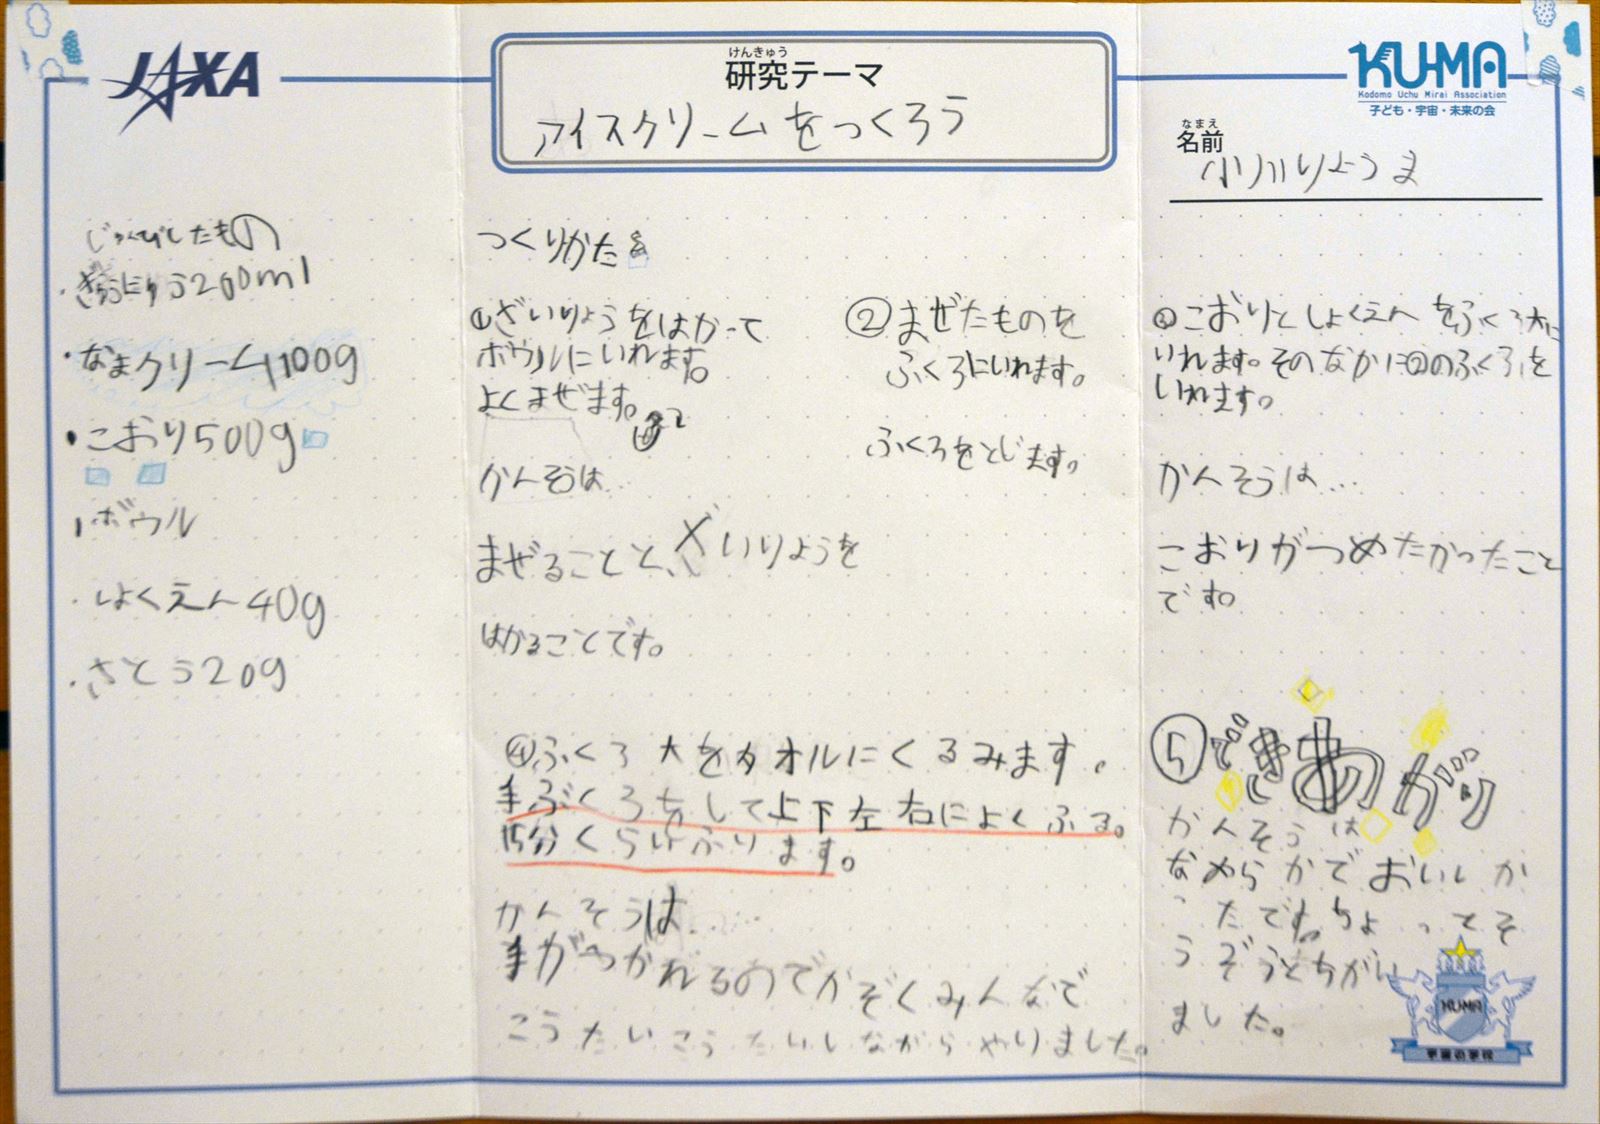 JAXA
けんきゅう
研究テーマ
アイスクリームをつくろう
KUMA
Kodomo Uchu Mirai Association
子ども・宇宙・未来の会
なまえ
名前
小川りょうま
じゅんびしたもの
・ぎゅうにゅう200ml
・なまクリーム100g
・こおり500g
・ボウル
・しょくえん40g
・さとう20g
つくりかた
①ざいりょうをはかって
ボウルにいれます。
よくまぜます。
かんそうは
まぜることと、ざいりょうを
はかることです。
②まぜたものを
ふくろにいれます。
ふくろをとじます。
③こおりとしょくえんをふくろ大に
いれます。そのなかに②のふくろを
いれます。
かんそうは…
こおりがつめたかったこと
です。
④ふくろ大をタオルにくるみます。
手ぶくろをして上下左右によくふる。
15分くらいふります。
かんそうは
手がつかれるのでかぞくみんなで
こうたいこうたいしながらやりました。
⑤できあがり
かんそうは
なめらかでおいしか
ったです。ちょってそ
うぞうとちがい
ました。
KUMA
宇宙の学校